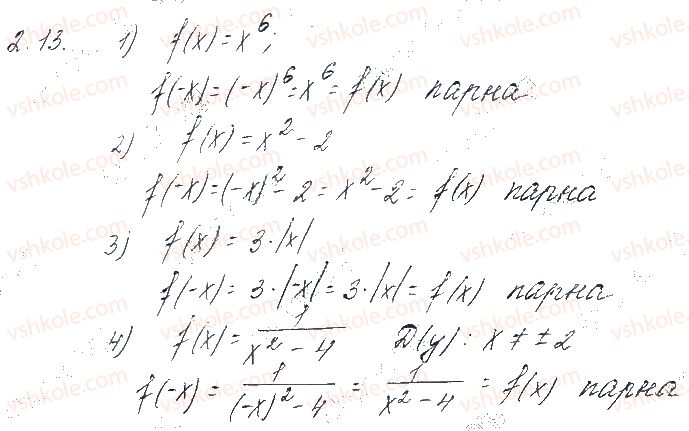 2.13. 1) f(x) = x⁶;
f(-x) = (-x)⁶ = x⁶ = f(x) парна
2) f(x) = x² - 2
f(-x) = (-x)² - 2 = x² - 2 = f(x) парна
3) f(x) = 3·|x|
f(-x) = 3·|-x| = 3·|x| = f(x) парна
4) f(x) = 1/(x² - 4) D(y): x ≠ ±2
f(-x) = 1/((-x)² - 4) = 1/(x² - 4) = f(x) парна